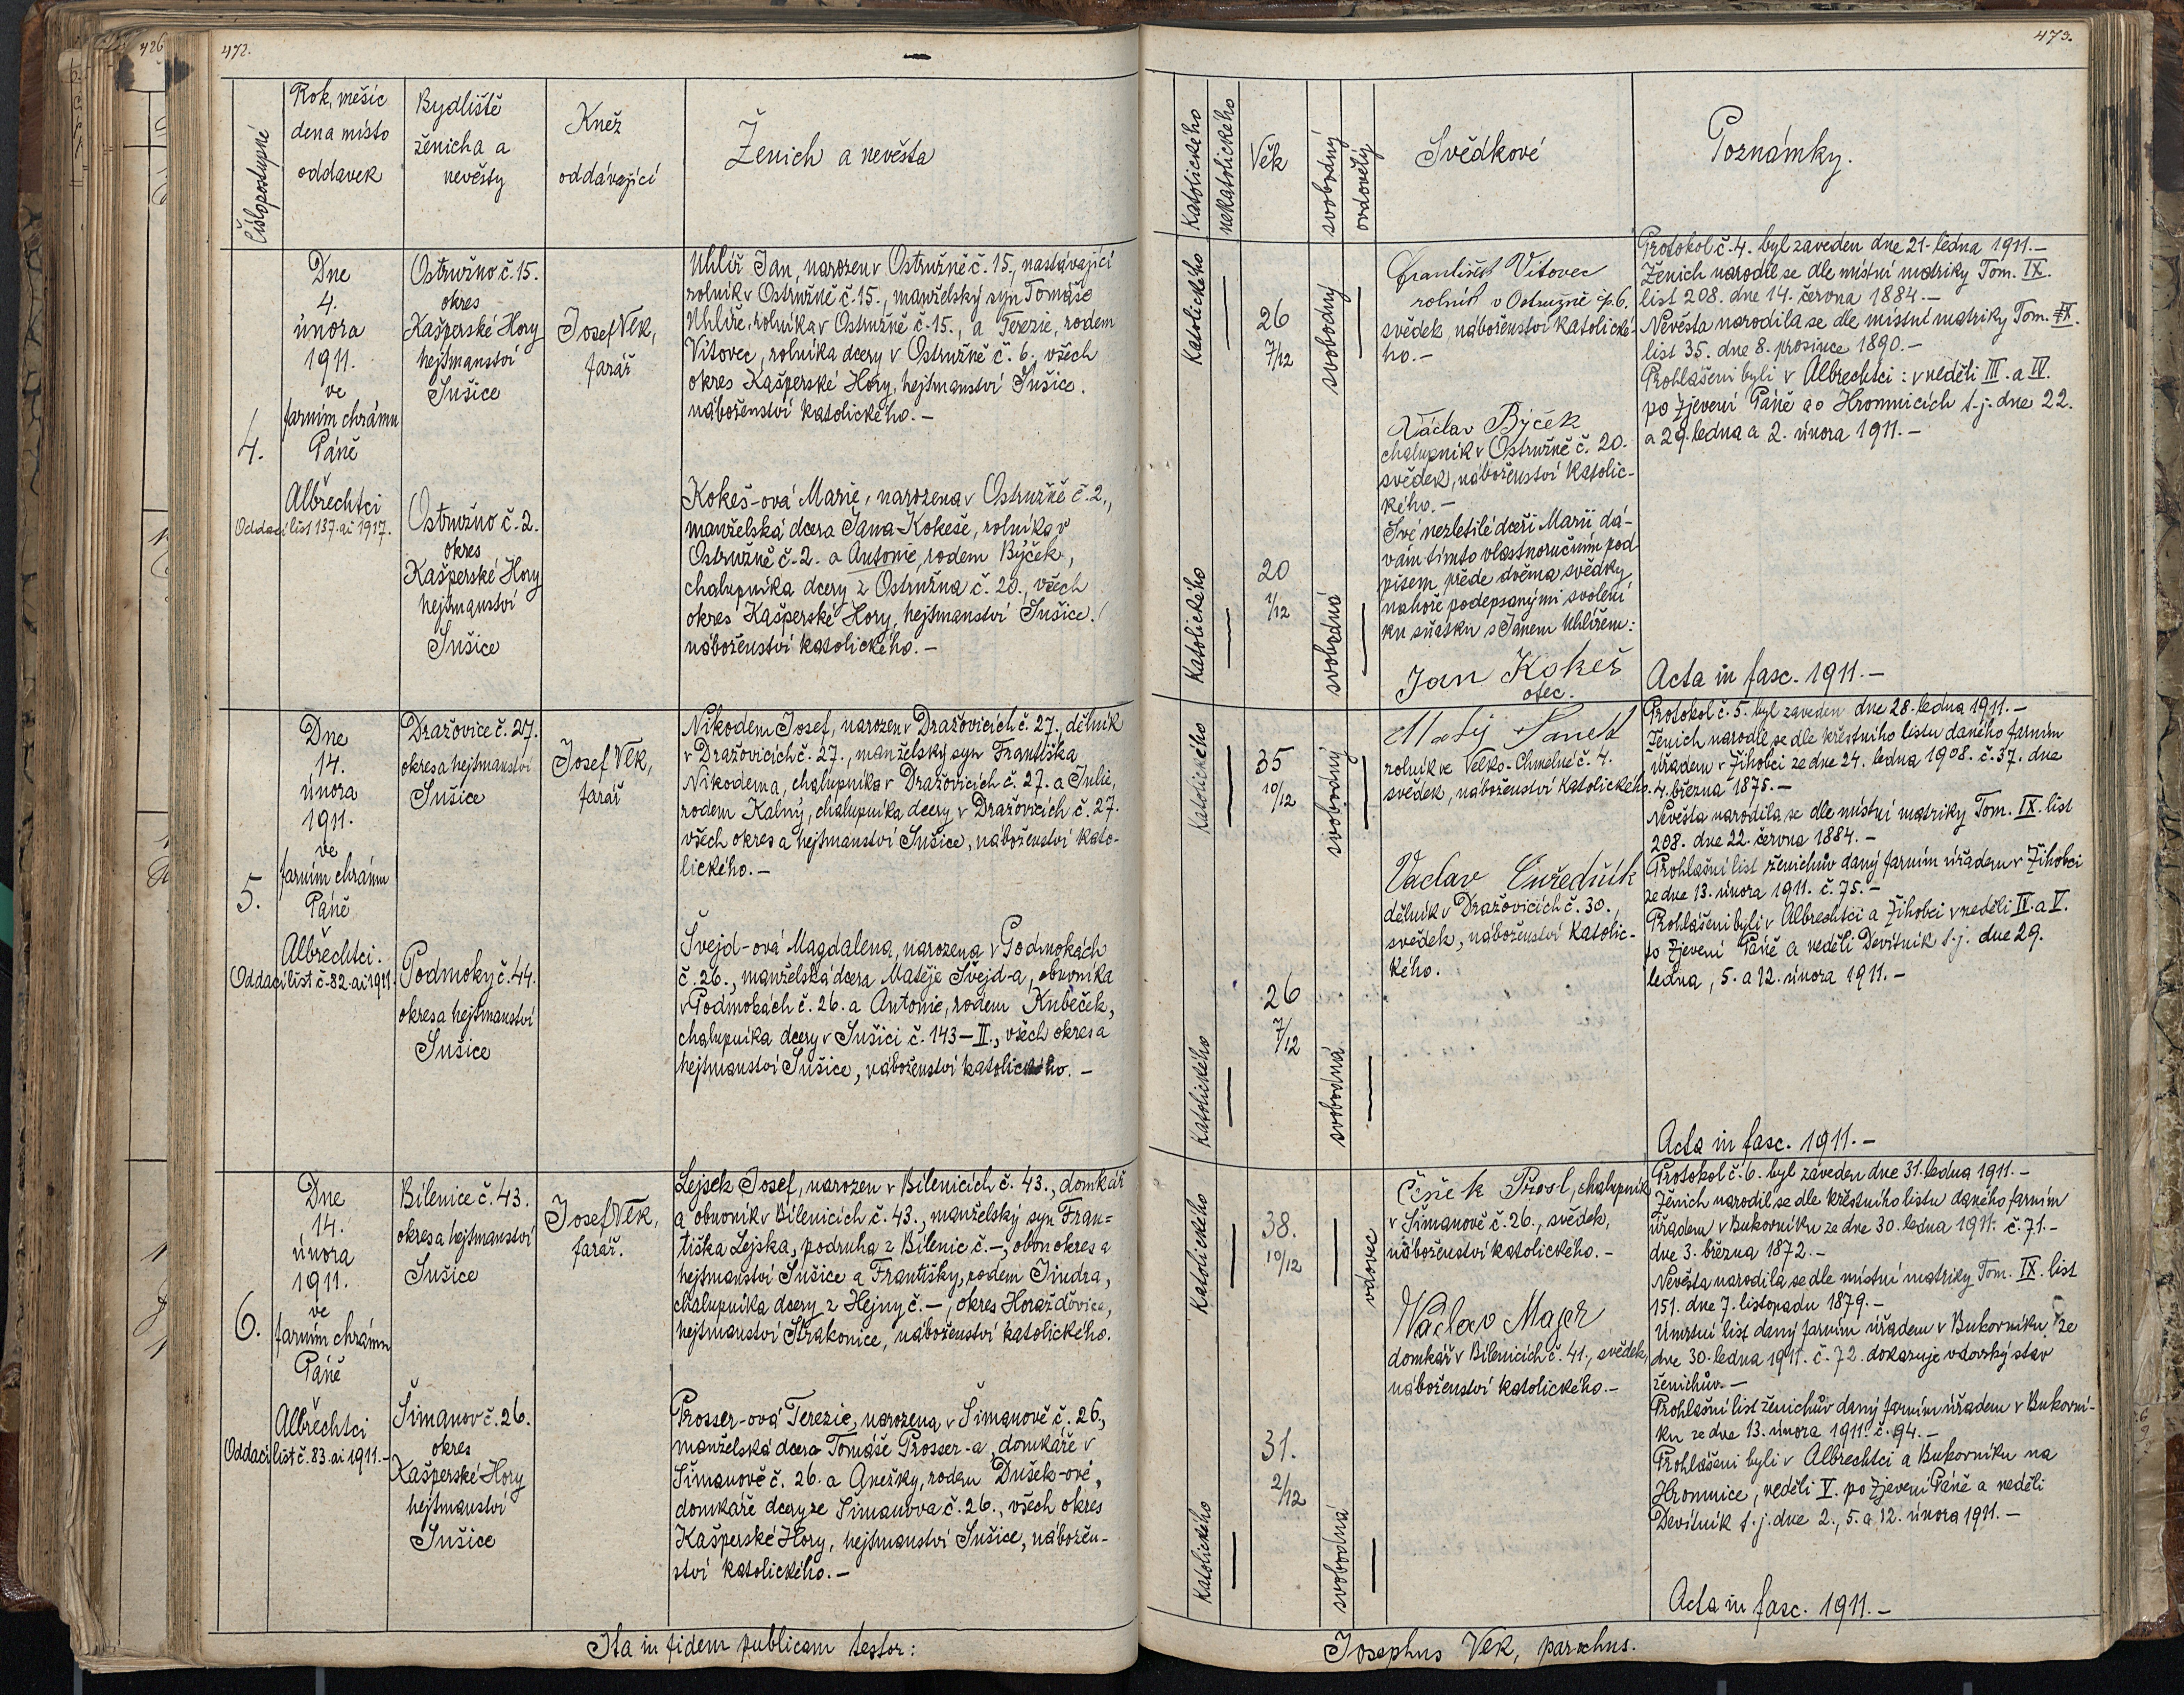 426
472.
Číslo postupné
Rok, měsíc
den a místo
oddavek
Bydliště
ženicha a
nevěsty
Kněz
oddávající
Ženich a nevěsta
4.
Dne
4.
února
1911.
ve
farním chrámu
Páně
Albrechtci
Oddací list 137. ai 1917.
Ostružno č. 15.
okres
Kašperské Hory
hejtmanství
Sušice
Josef Vlk,
farář
Uhlíř Jan, narozen v Ostružně č. 15., nastávající
rolník v Ostružně č. 15., manželský syn Tomáše
Uhlíře, rolníka v Ostružně č. 15., a Terezie, rodem
Vítovec, rolníka dcery v Ostružně č. 6., všech
okres Kašperské Hory, hejtmanství Sušice.
náboženství katolického. –
Ostružno č. 2.
okres
Kašperské Hory
hejtmanství
Sušice
Kokeš-ová Marie, narozena v Ostružně č. 2.,
manželská dcera Jana Kokeše, rolníka v
Ostružně č. 2. a Antonie, rodem Býček,
chalupníka dcery z Ostružna č. 20., všech
okres Kašperské Hory, hejtmanství Sušice.
náboženství katolického. –
5.
Dne
14.
února
1911.
ve
farním chrámu
Páně
Albrechtci.
Oddací list č. 82. ai 1911.
Dražovice č. 27.
okres a hejtmanství
Sušice
Josef Vlk,
farář
Nikodem Josef, narozen v Dražovicích č. 27. dělník
v Dražovicích č. 27., manželský syn Františka
Nikodema, chalupníka v Dražovicích č. 27. a Julie,
rodem Kalný, chalupníka dcery v Dražovicích č. 27.
všech okres a hejtmanství Sušice, náboženství kato-
lického. –
Podmoky č. 44.
okres a hejtmanství
Sušice
Švejd-ová Magdalena, narozena v Podmokách
č. 26., manželská dcera Matěje Švejd-a, obuvníka
v Podmokách č. 26. a Antonie, rodem Kubeček,
chalupníka dcery v Sušici č. 143–II., všech okres a
hejtmanství Sušice, náboženství katolického. –
6.
Dne
14.
února
1911.
ve
farním chrámu
Páně
Albrechtci
Oddací list č. 83. ai 1911. –
Bílenice č. 43.
okres a hejtmanství
Sušice
Josef Vlk,
farář.
Lejsek Josef, narozen v Bílenicích č. 43., domkář
a obuvník v Bílenicích č. 43., manželský syn Fran=
tiška Lejska, podruha z Bílenic č. –, obou okres a
hejtmanství Sušice a Františky, rodem Jindra,
chalupníka dcery z Hejny č. –, okres Horažďovice,
hejtmanství Strakonice, náboženství katolického.
Šimanov č. 26.
okres
Kašperské Hory
hejtmanství
Sušice
Prosser-ová Terezie, narozena v Šimanově č. 26.,
manželská dcera Tomáše Prosser-a, domkáře v
Šimanově č. 26. a Anežky, rodem Dušek-ové,
domkáře dcery ze Šimanova č. 26., všech okres
Kašperské Hory, hejtmanství Sušice, nábožen-
ství katolického. –
Ita in fidem publicam testor:
473.
Katolického
nekatolického
Věk
svobodný
ovdovělý
Svědkové
Poznámky.
Katolického
26
7/12
svobodný
František Vítovec
rolník v Ostružně čp. 6.
svědek, náboženství katolické-
ho. –
Václav Býček
chalupník v Ostružně č. 20.
svědek, náboženství katolic-
kého. –
Katolického
20
1/12
svobodná
Své nezletilé dceři Marii dá-
vám tímto vlastnoručním pod-
pisem přede dvěma svědky
nahoře podepsanými svolení
ku sňatku s Janem Uhlířem:
Jan Kokeš
otec.
Protokol č. 4. byl zaveden dne 21. ledna 1911. –
Ženich narodil se dle místní matriky Tom. IX.
list 208. dne 14. června 1884. –
Nevěsta narodila se dle místní matriky Tom. IX.
list 35. dne 8. prosince 1890. –
Prohlášeni byli v Albrechtci: v neděli III. a IV.
po Zjevení Páně a o Hromnicích t. j. dne 22.
a 29. ledna a 2. února 1911. –
Acta in fasc. 1911. –
Katolického
35
10/12
svobodný
Matěj Panek
rolník ve Velko-Chmelné č. 4.
svědek, náboženství katolického.
Václav Cuředník
dělník v Dražovicích č. 30.,
svědek, náboženství katolic-
kého.
Katolického
26
7/12
svobodná
Protokol č. 5. byl zaveden dne 28. ledna 1911. –
Ženich narodil se dle křestního listu daného farním
úřadem v Žihobci ze dne 24. ledna 1908. č. 37. dne
4. března 1875. –
Nevěsta narodila se dle místní matriky Tom. IX. list
208. dne 22. června 1884. –
Prohlašní list ženichův daný farním úřadem v Žihobci
ze dne 13. února 1911. č. 75. –
Prohlášeni byli v Albrechtci a Žihobci v neděli IV. a V.
po Zjevení Páně a neděli Devítník t. j. dne 29.
ledna, 5. a 12. února 1911. –
Acta in fasc. 1911. –
Katolického
38.
10/12
vdovec
Čeněk Prosl, chalupník
v Šimanově č. 26., svědek,
náboženství katolického. –
Václav Majer
domkář v Bílenicích č. 41., svědek,
náboženství katolického. –
Katolického
31.
2/12
svobodná
Protokol č. 6. byl zaveden dne 31. ledna 1911. –
Ženich narodil se dle křestního listu daného farním
úřadem v Bukovníku ze dne 30. ledna 1911. č. 71. –
dne 3. března 1872. –
Nevěsta narodila se dle místní matriky Tom. IX. list
151. dne 7. listopadu 1879. –
Úmrtní list daný farním úřadem v Bukovníku ze
dne 30. ledna 1911. č. 72. dokazuje vdovský stav
ženichův. –
Prohlašní list ženichův daný farním úřadem v Bukovní-
ku ze dne 13. února 1911. č. 94. –
Prohlášeni byli v Albrechtci a Bukovníku na
Hromnice, neděli V. po Zjevení Páně a neděli
Devítník t. j. dne 2., 5. a 12. února 1911. –
Acta in fasc. 1911. –
Josephus Vlk, parochus.